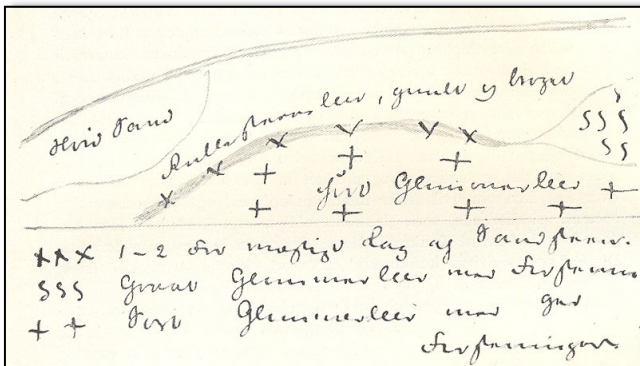 Hvid Sand
Rullesteens leer, guult og broget
SSS
SS
Sort Glimmerleer
××× 1-2 Fod mægtigt Lag af Sandsteen.
SSS Graat Glimmerleer med Forstenin
+ + Sort Glimmerleer med
Forsteninger